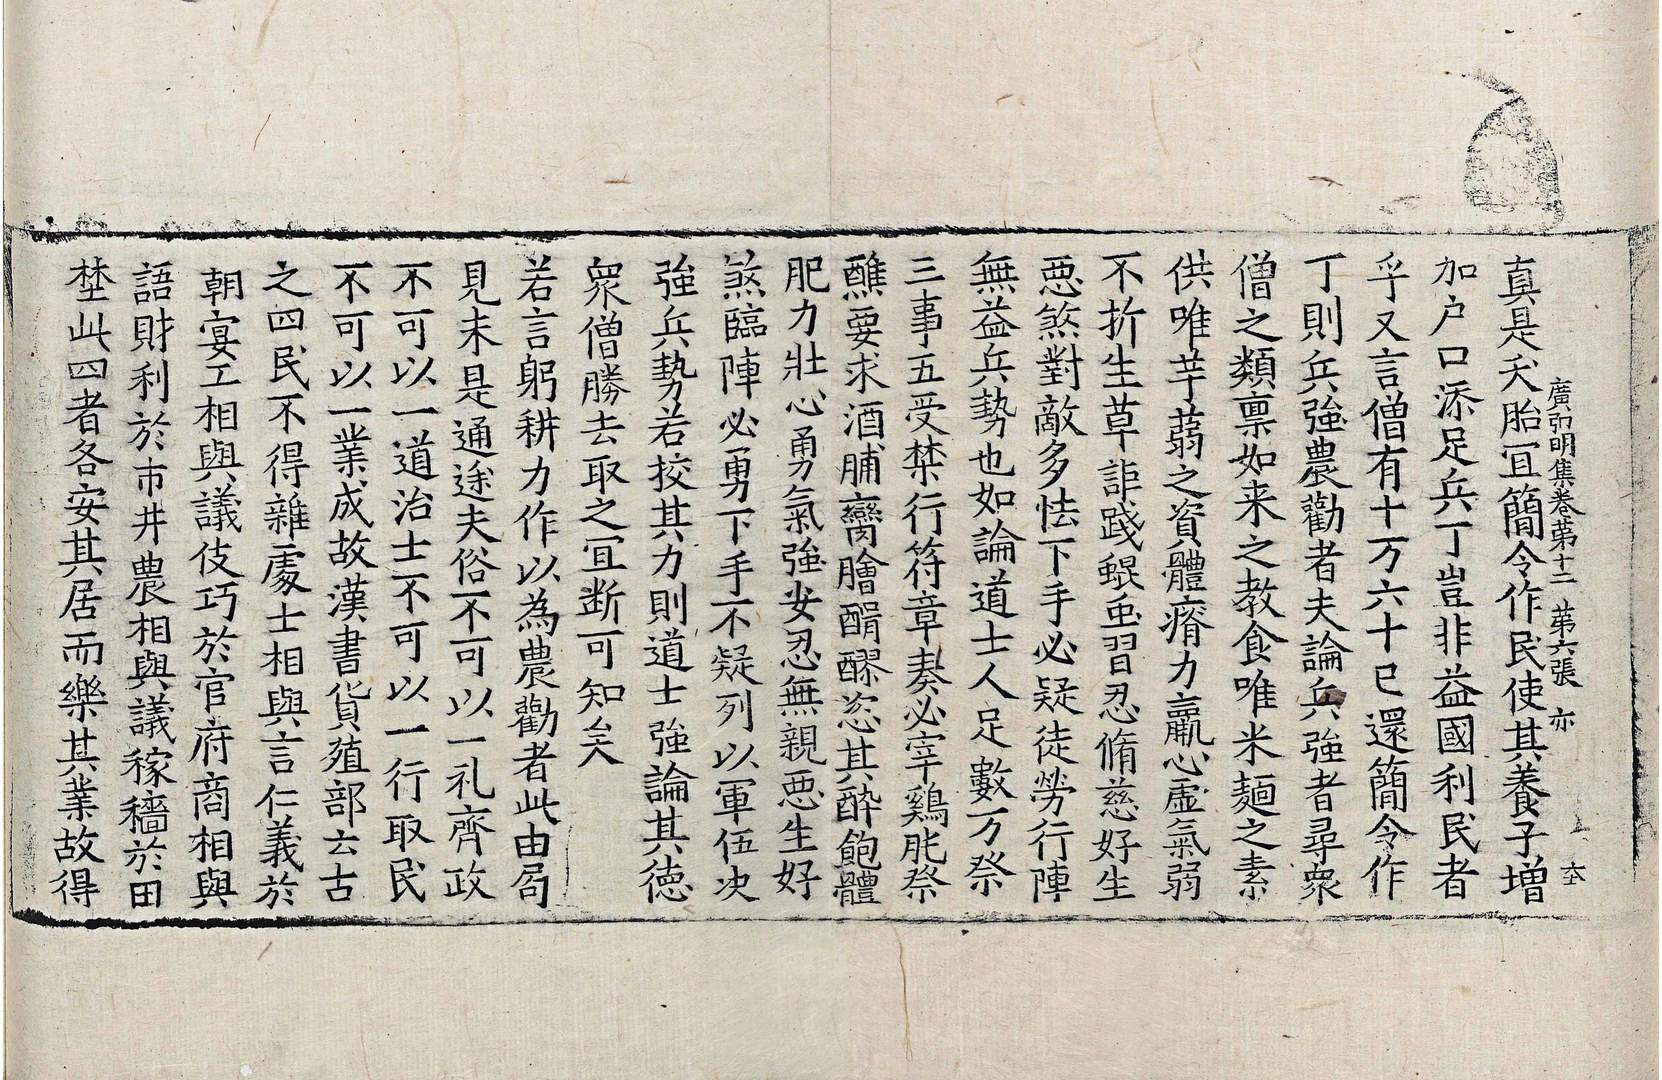 廣弘明集卷苐十二 苐六張 亦
真是殀胎宜簡令作民使其養子增
加户口添足兵丁豈非益國利民者
乎又言僧有十万六十已還簡令作
丁則兵強農勸者夫論兵強者尋衆
僧之類禀如来之教食唯米麺之素
供唯芋蒻之資體瘠力羸心虛氣弱
不折生草詎踐蜫䖝習忍脩慈好生
惡煞對敵多怯下手必疑徒勞行陣
無益兵勢也如論道士人足數万祭
三事五受禁行符章奏必宰鷄肫祭
醮要求酒脯臠膾醑醪恣其醉飽體
肥力壯心勇氣強安忍無親惡生好
煞臨陣必勇下手不疑列以軍伍决
強兵勢若挍其力則道士強論其德
衆僧勝去取之宜断可知矣
若言躬耕力作以為農勸者此由局
見未是通途夫俗不可以一礼齊政
不可以一道治士不可以一行取民
不可以一業成故漢書貨殖部云古
之四民不得雜處士相與言仁義於
朝宴工相與議伎巧於官府商相與
語財利於市井農相與議稼穡於田
埜此四者各安其居而樂其業故得